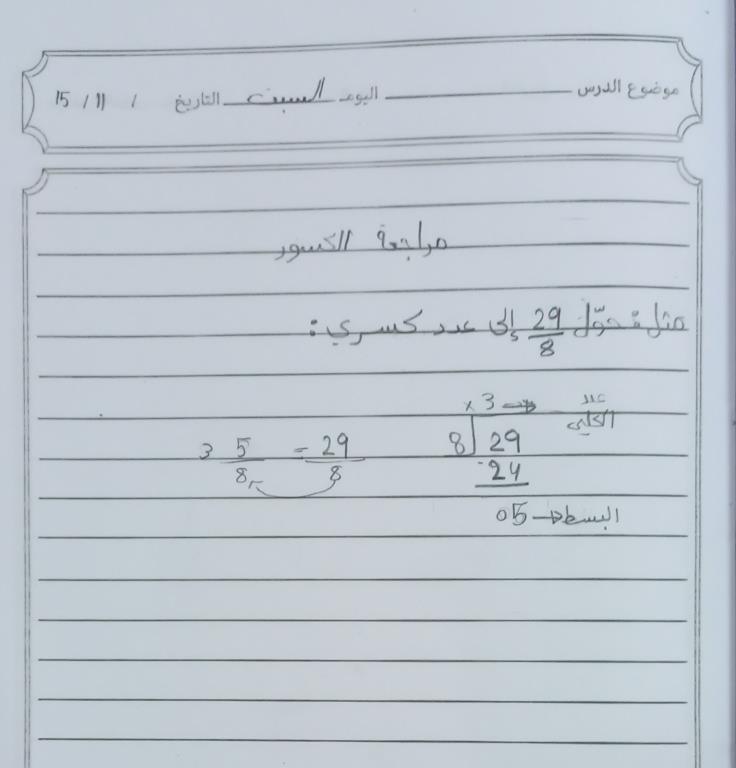 موضوع الدرس اليوم السبت التاريخ / 11 / 15
مراجعة الكسور
مثل: حوّل 29/8 إلى عدد كسري:
× 3 → عدد الكلي
8 29
-24
05 → البسط
29/8 = 3 5/8